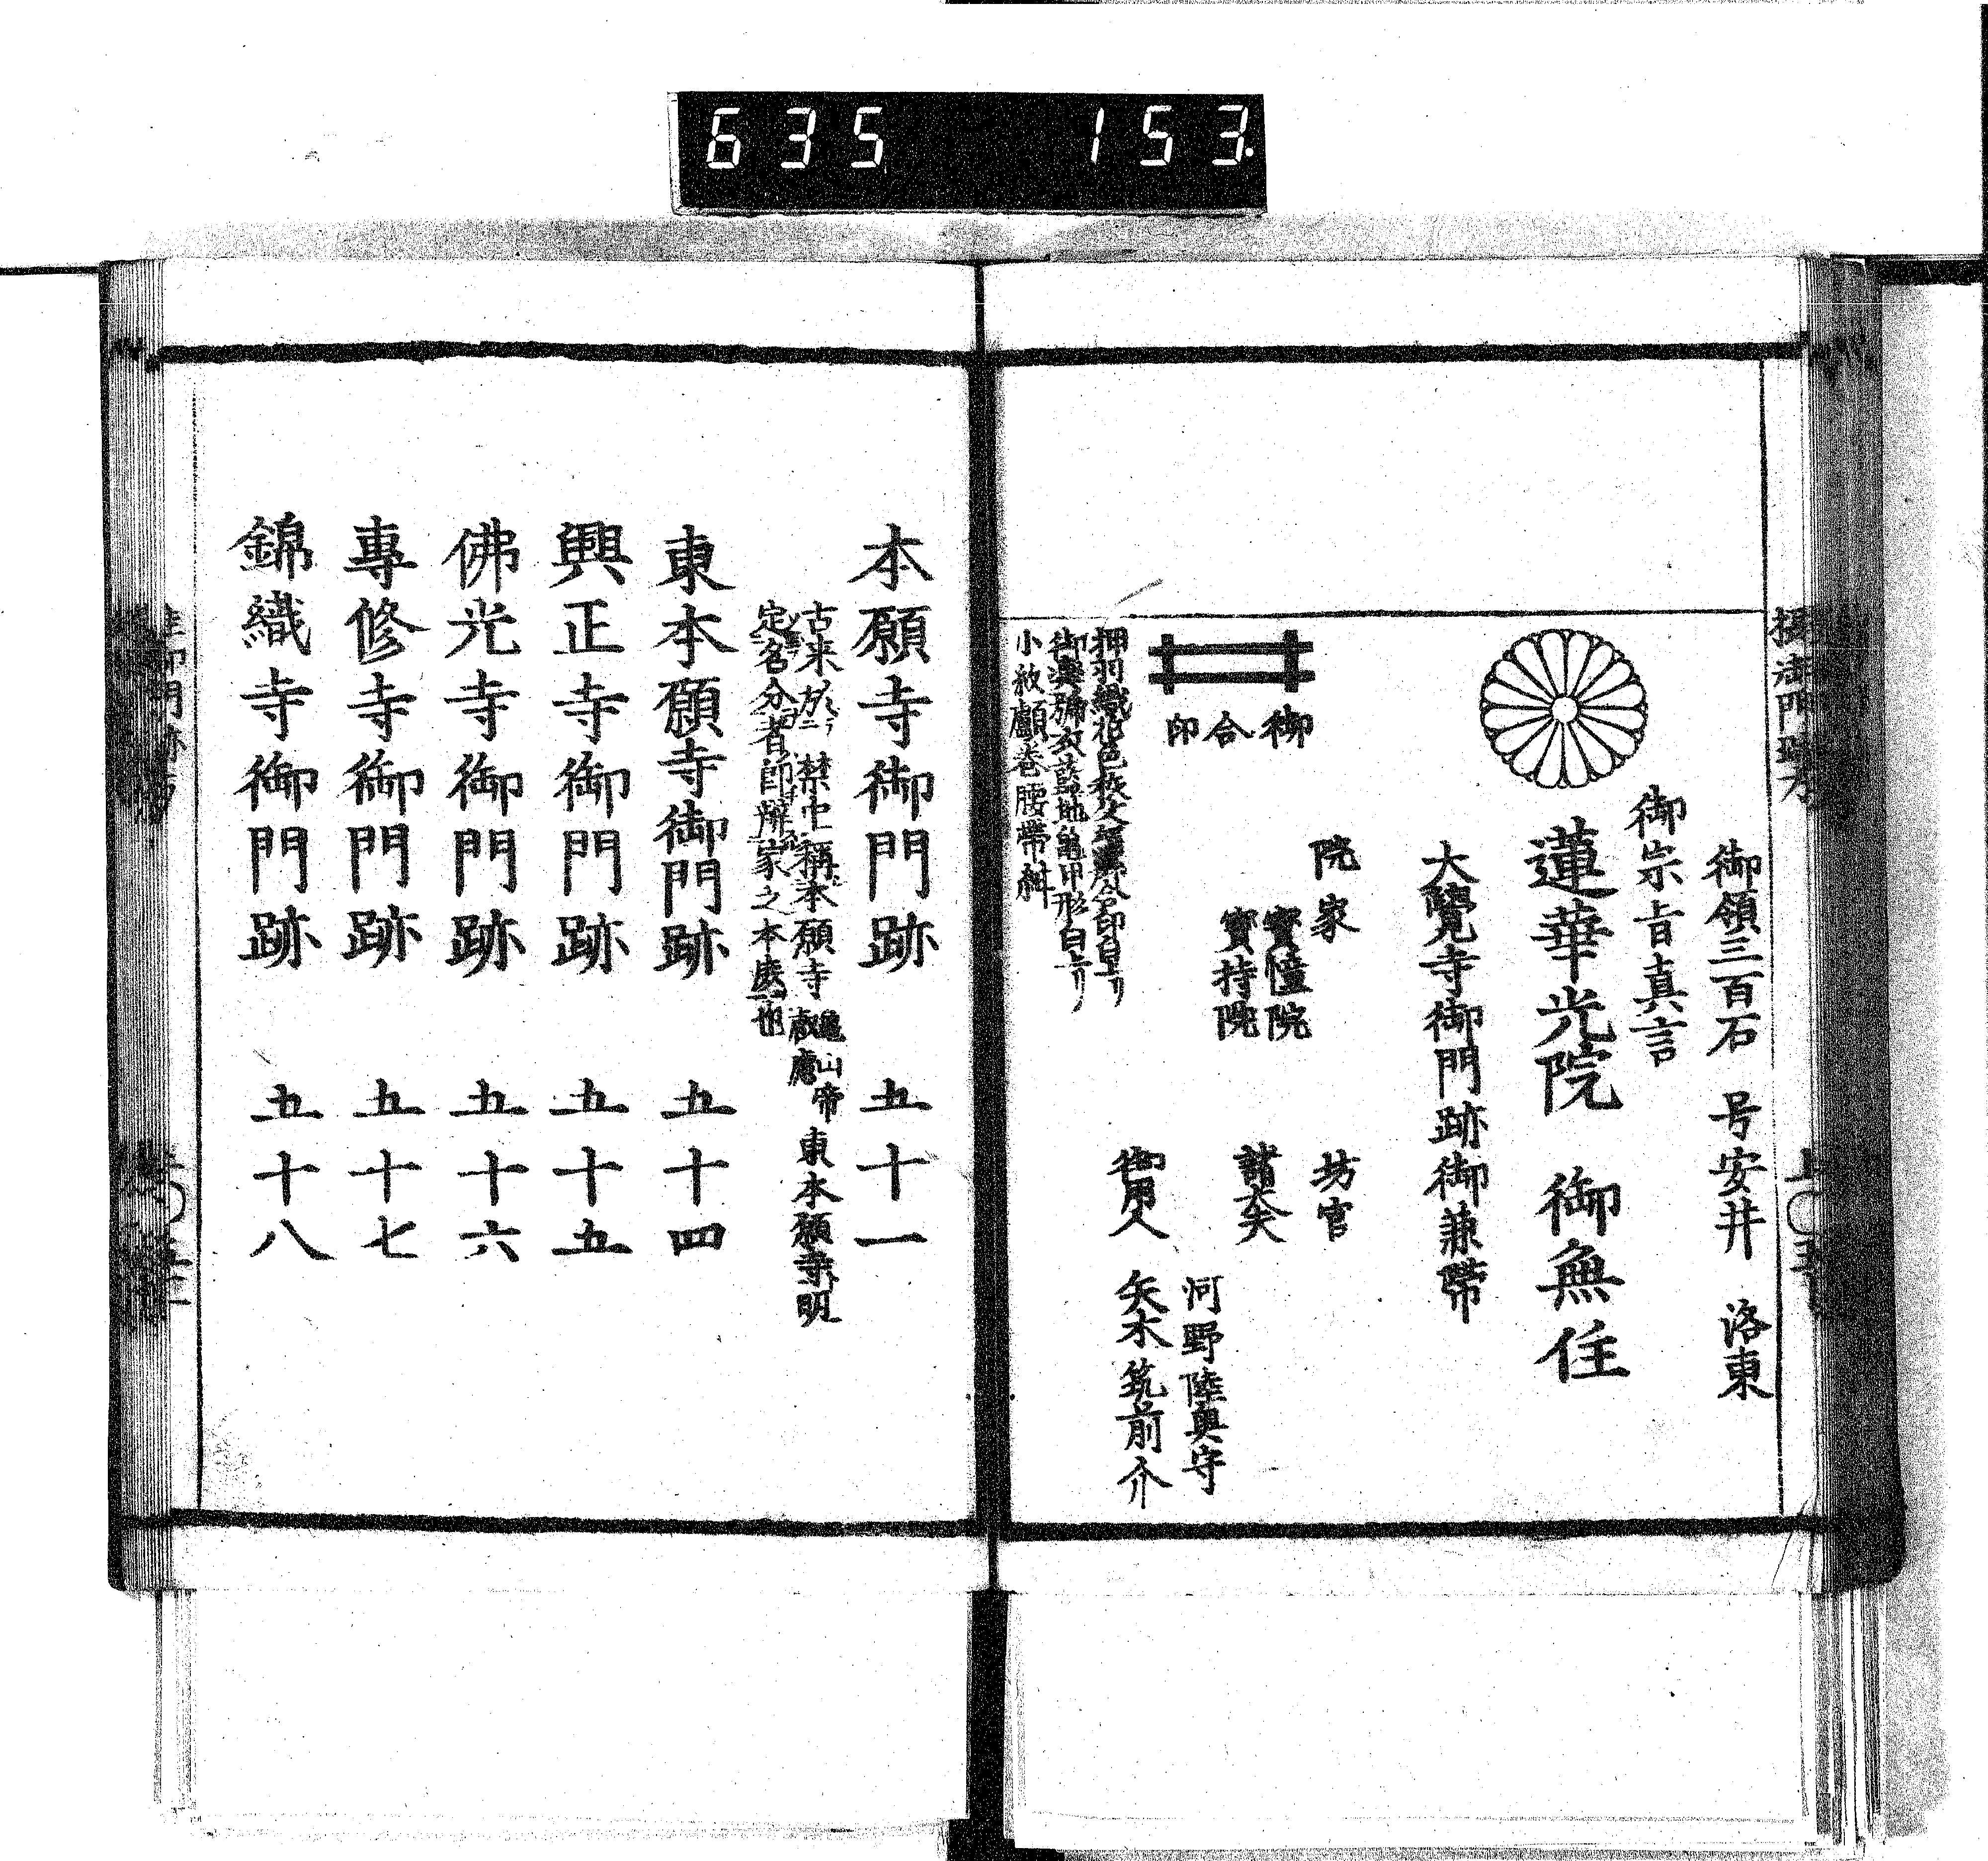 635 153.
摂御門跡方
御領三百石 号安井 洛東
御宗旨真言
蓮華光院 御無住
大覺寺御門跡御兼帶
院家
寳幢院
寳持院
坊官
諸大夫
河野陸奥守
御用人 矢木筑前介
御合印
御輿舁衣藍地亀甲形白上リ
小紋顱巻腰帶
本願寺御門跡 五十一
古来於禁中稱本願寺 亀山帝叡慮 東本願寺明
定名分者師辯家之本處也
東本願寺御門跡 五十四
興正寺御門跡 五十五
佛光寺御門跡 五十六
專修寺御門跡 五十七
錦織寺御門跡 五十八